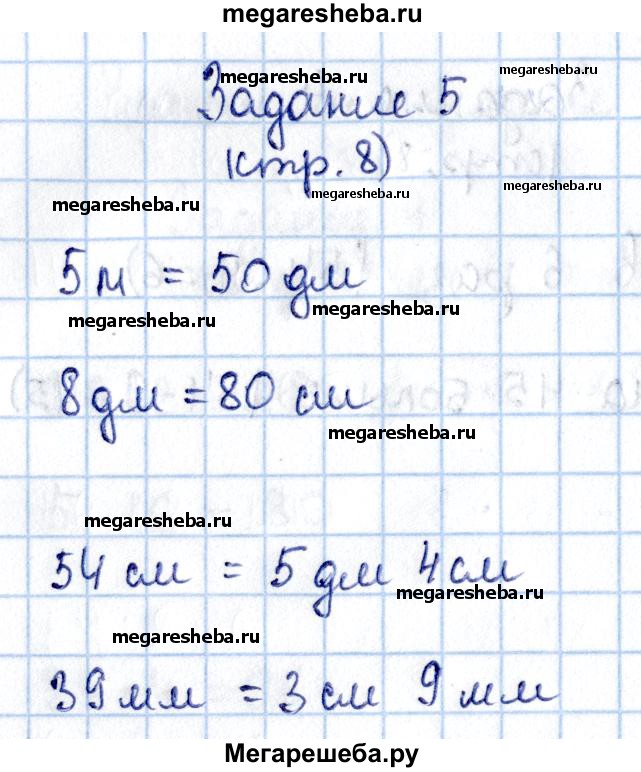 megaresheba.ru
megaresheba.ru megaresheba.ru
Задание 5
(стр. 8)
megaresheba.ru megaresheba.ru
megaresheba.ru
5 м = 50 дм
megaresheba.ru megaresheba.ru
8 дм = 80 см
megaresheba.ru
megaresheba.ru
54 см = 5 дм 4 см
megaresheba.ru
megaresheba.ru
39 мм = 3 см 9 мм
Мегарешеба.ру